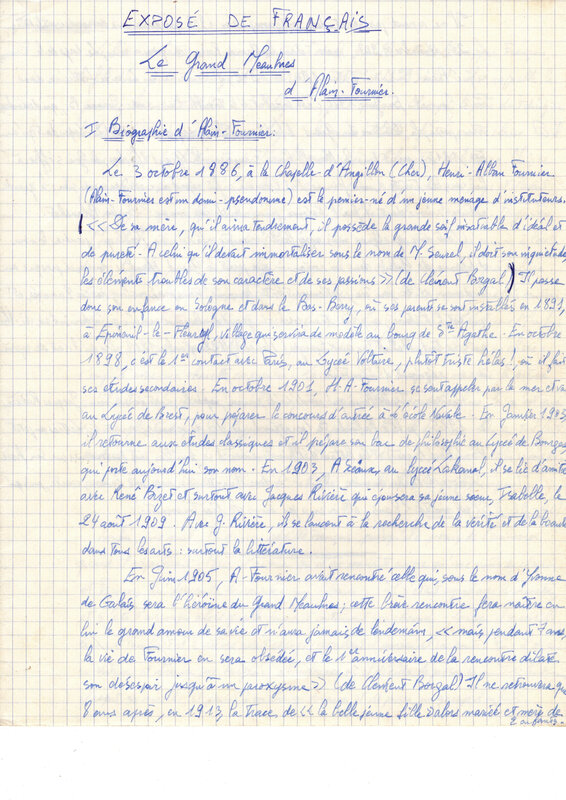 EXPOSÉ DE FRANÇAIS
Le Grand Meaulnes
d'Alain-Fournier.
I Biographie d'Alain-Fournier:
Le 3 octobre 1886, à la Chapelle d'Angillon (Cher), Henri-Alban Fournier
(Alain-Fournier est un demi-pseudonyme) est le premier-né d'un jeune ménage d'instituteurs.
(<< De sa mère, qu'il aima tendrement, il possède la grande soif insatiable d'idéal et
de pureté. A celui qu'il devait immortaliser sous le nom de M. Seurel, il doit son inquiétude,
les éléments troubles de son caractère et de ses passions >> (de Clément Borgal.)) Il passe
donc son enfance en Sologne et dans le Bas-Berry, où ses parents se sont installés en 1891,
à Epineuil-le-Fleuriel, village qui servira de modèle au bourg de Ste Agathe. En octobre
1898, c'est le 1er contact avec Paris, au Lycée Voltaire, plutôt triste hélas!, où il fait
ses études secondaires. En octobre 1901, H.A-Fournier se sent appeler par la mer et va
au Lycée de Brest, pour préparer le concours d'entrée à l'école Navale. En Janvier 1903,
il retourne aux études classiques et il prépare son bac de philosophie au Lycée de Bourges
qui porte aujourd'hui son nom. En 1903, A Sceaux, au lycée Lakanal, il se lie d'amitié
avec René Bizet et surtout avec Jacques Rivière qui épousera sa jeune soeur, Isabelle, le
24 août 1909. Avec J. Rivière, ils se lancent à la recherche de la vérité et de la beauté
dans tous les arts: surtout la littérature.
En Juin 1905, A-Fournier avait rencontré celle qui, sous le nom d'Yvonne
de Galais sera l'héroïne du Grand Meaulnes; cette brève rencontre fera naître en
lui le grand amour de sa vie et n'aura jamais de lendemain, << mais pendant 7 ans,
la vie de Fournier en sera obsédée, et le 1er anniversaire de la rencontre dilate
son désespoir jusqu'à un paroxysme >> (de Clément Borgal) Il ne retrouvera que
8 ans après, en 1913, la trace de << la belle jeune fille >> alors mariée et mère de
2 enfants.